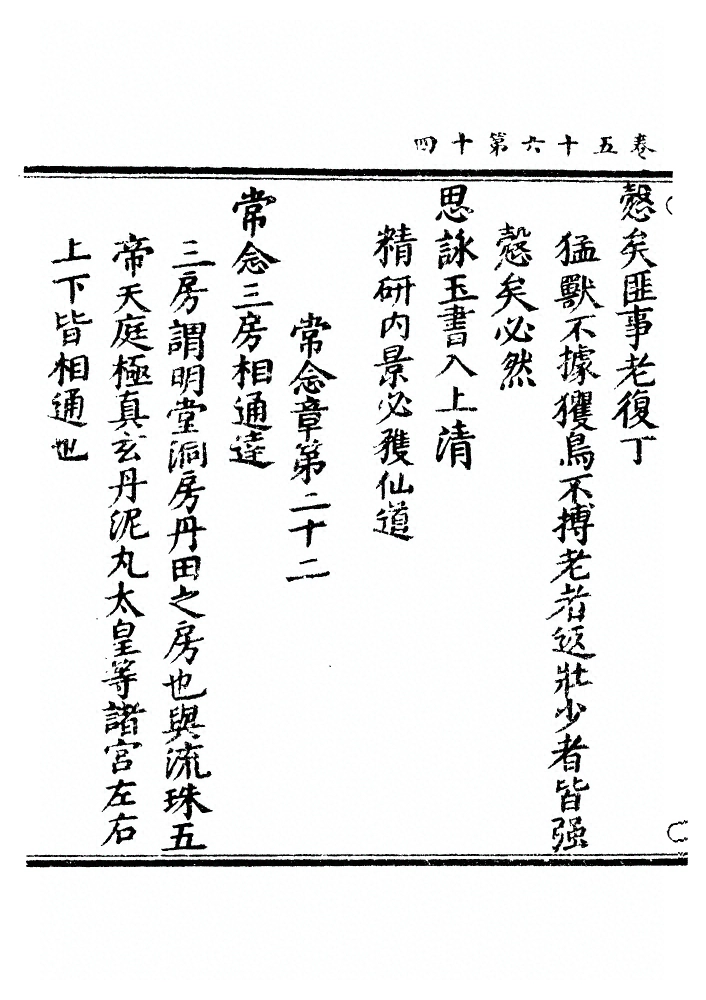 卷五十六第十四
慤矣匪事老復丁
猛獸不據玃鳥不搏老者返壯少者皆强
慤矣必然
思詠玉書入上清
精研内景必獲仙道
常念章第二十二
常念三房相通達
三房謂明堂洞房丹田之房也與流珠五
帝天庭極真玄丹泥丸太皇等諸宮左右
上下皆相通也